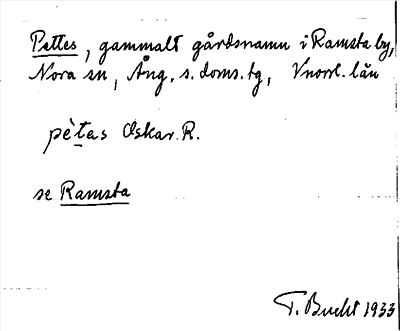 Pettes, gammalt gårdsnamn i Ramsta by,
Nora sn, Ång. s. doms. tg, Vnorrl. län
pètas Oskar. R.
se Ramsta
T. Bucht 1933